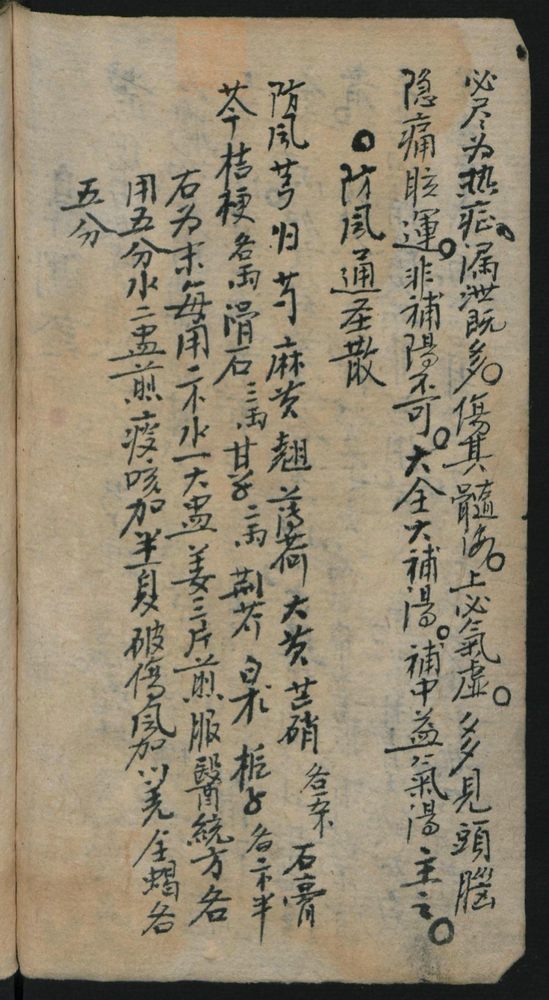 必尽为热症漏泄既多。傷其髓海。上必氣虛。多多見頭腦
隐痛眩運。非補陽不可。大全大補湯。補中益氣湯主之。
防風通圣散
防風芎归芍麻黄翘薄荷大黄芒硝各 石膏
芩桔梗各兩滑石三兩甘草二兩荆芥白术栀子各 半
右为末每用二 水一大盅姜三片煎服醫統方各
用五分水二盅煎痰咳加半夏破傷風加 羌全蝎各
五分